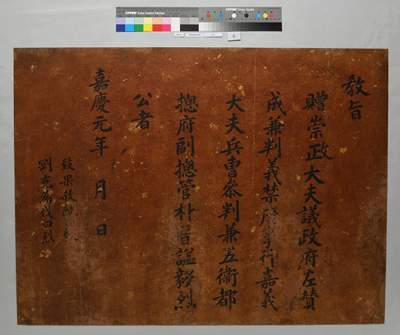 教旨
贈崇政大夫議政府左贊
成兼判義禁府事行嘉義
大夫兵曹參判兼五衛都
摠府副摠管朴晉謚毅烈
公者
嘉慶元年 月 日